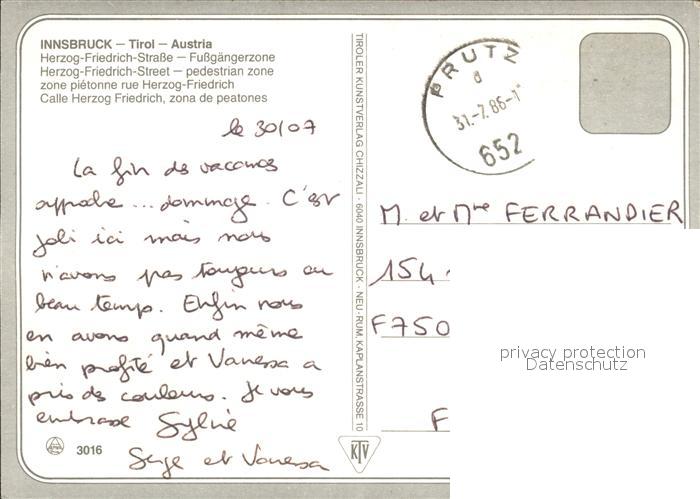 INNSBRUCK – Tirol – Austria
Herzog-Friedrich-Straße – Fußgängerzone
Herzog-Friedrich-Street – pedestrian zone
zone piétonne rue Herzog-Friedrich
Calle Herzog Friedrich, zona de peatones
le 30/07
La fin des vacances
approche ... dommage. C'est
joli ici mais nous
n'avons pas toujours eu
beau temps. Enfin nous
en avons quand même
bien profité et Vanessa a
pris des couleurs. Je vous
embrasse Sylvie
Serge et Vanessa
3016
TIROLER KUNSTVERLAG CHIZZALI · 6040 INNSBRUCK - NEU-RUM, KAPLANSTRASSE 10
KTV
PRUTZ
a
31.-7.86-1
652
M. et Mme FERRANDIER
154
F750
F
privacy protection
Datenschutz